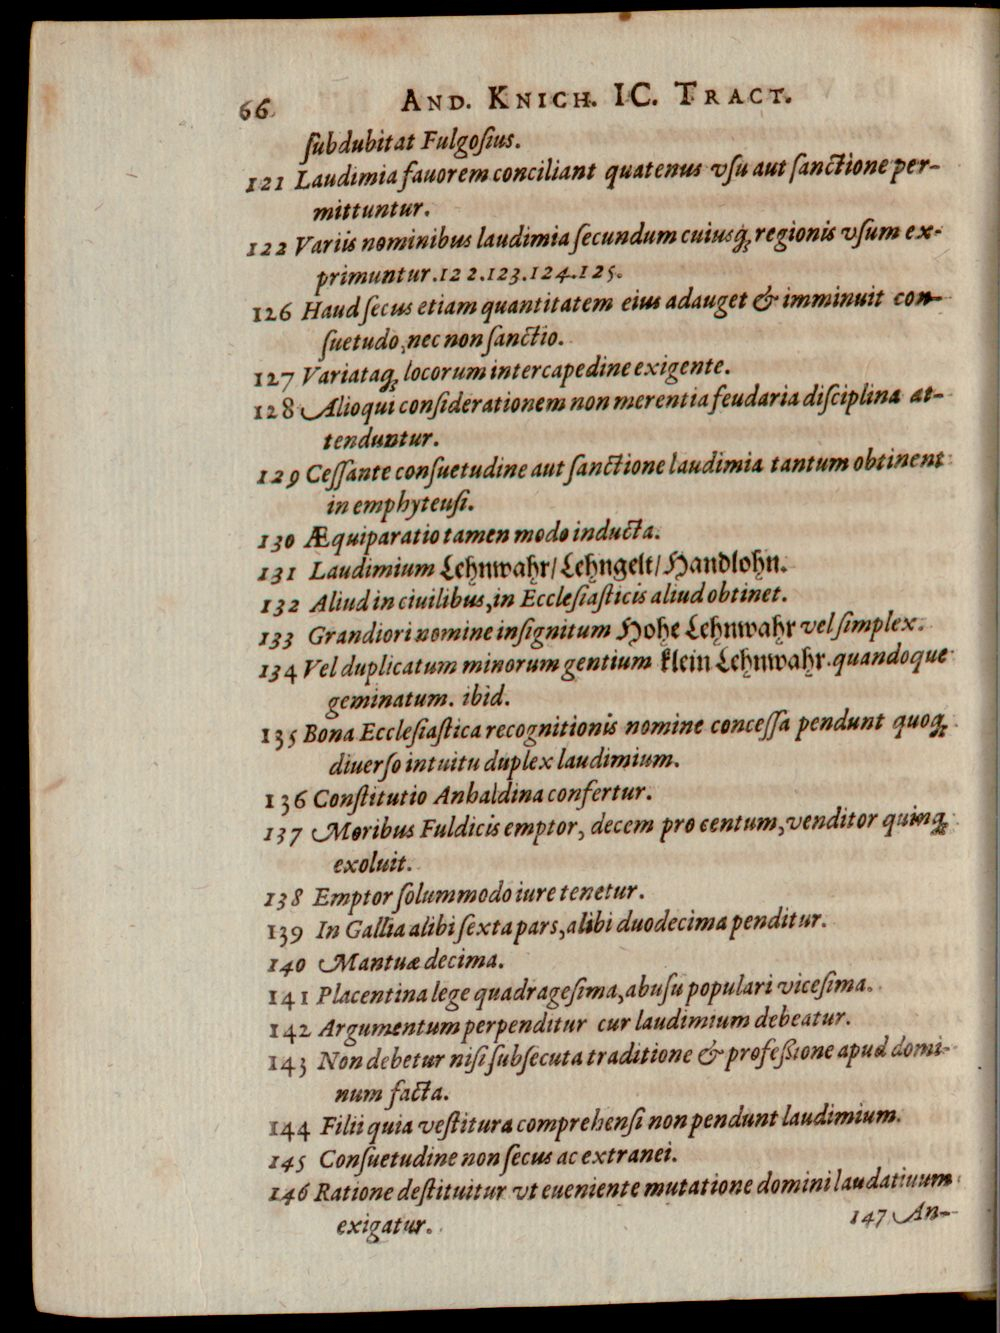 66 AND. KNICH. IC. TRACT.
ſubdubitat Fulgoſius.
121 Laudimia fauorem conciliant quatenus vſu aut ſanctione per-
mittuntur.
122 Variis nominibus laudimia ſecundum cuiusq́; regionis vſum ex-
primuntur. 122. 123. 124. 125.
126 Haud ſecus etiam quantitatem eius adauget & imminuit con-
ſuetudo, nec non ſanctio.
127 Variataq́; locorum intercapedine exigente.
128 Alioqui conſiderationem non merentia feudaria diſciplina at-
tenduntur.
129 Ceſſante conſuetudine aut ſanctione laudimia tantum obtinent
in emphyteuſi.
130 Æquiparatio tamen modo inducta.
131 Laudimium Lehnwahr/ Lehngelt/ Handlohn.
132 Aliud in ciuilibus, in Eccleſiaſticis aliud obtinet.
133 Grandiori nomine inſignitum Hohe Lehnwahr vel ſimplex.
134 Vel duplicatum minorum gentium klein Lehnwahr. quandoque
geminatum. ibid.
135 Bona Eccleſiaſtica recognitionis nomine conceſſa pendunt quoq;
diuerſo intuitu duplex laudimium.
136 Conſtitutio Anhaldina confertur.
137 Moribus Fuldicis emptor, decem pro centum, venditor quinq;
exoluit.
138 Emptor ſolummodo iure tenetur.
139 In Gallia alibi ſexta pars, alibi duodecima penditur.
140 Mantuæ decima.
141 Placentina lege quadrageſima, abuſu populari viceſima.
142 Argumentum perpenditur cur laudimium debeatur.
143 Non debetur niſi ſubſecuta traditione & profeßione apud domi-
num facta.
144 Filii quia veſtitura comprehenſi non pendunt laudimium.
145 Conſuetudine non ſecus ac extranei.
146 Ratione deſtituitur vt eueniente mutatione domini laudatiuum
exigatur.
147 An-